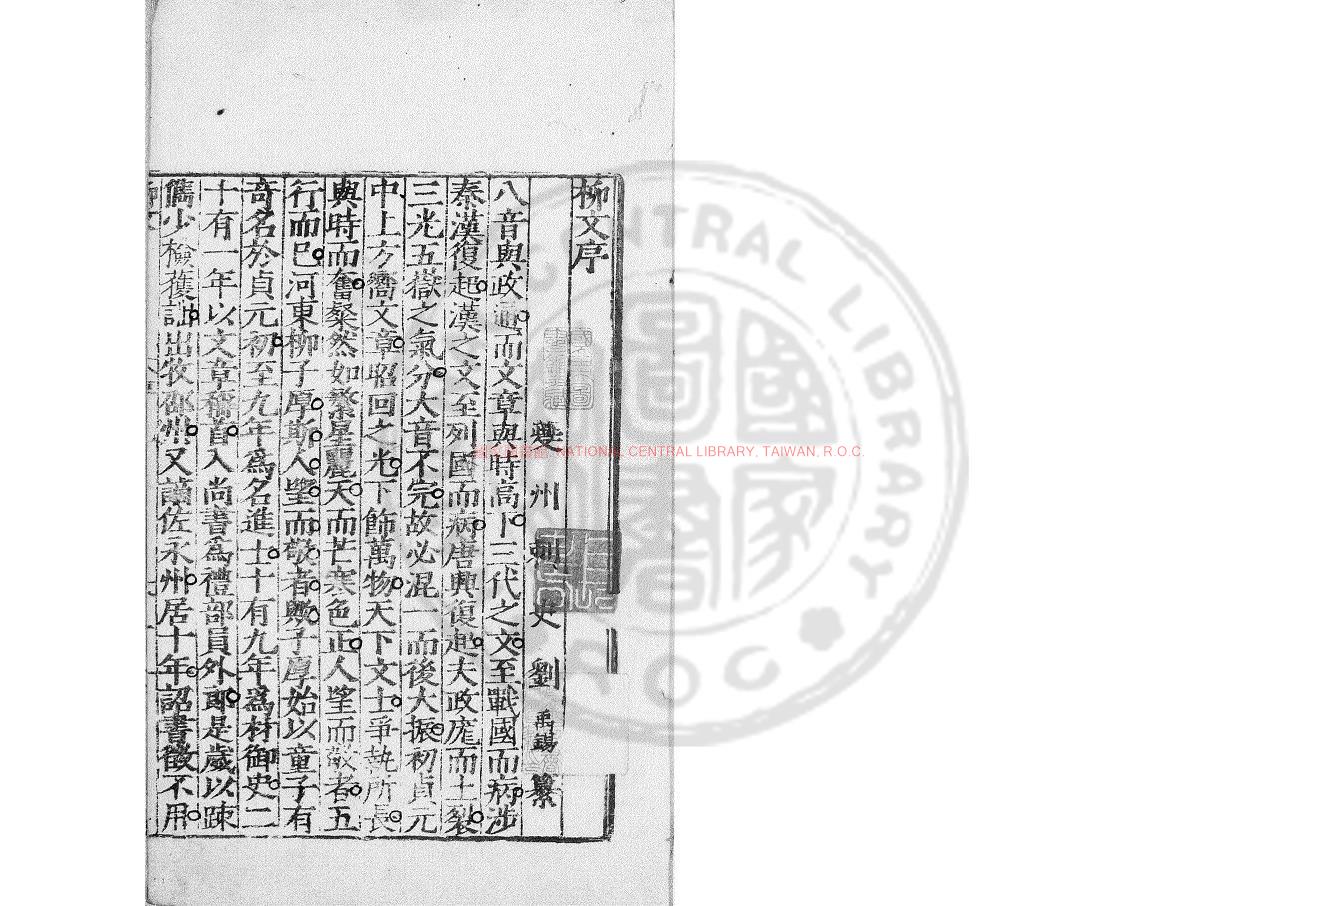 柳文序
夔州刺史劉禹錫纂
八音與政通而文章與時高下三代之文至戰國而病涉
秦漢復起漢之文至列國而病唐興復起夫政庬而土裂
三光五嶽之氣分大音不完故必混一而後大振初貞元
中上方嚮文章昭回之光下飾萬物天下文士爭執所長
與時而奮粲然如繁星麗天而芒寒色正人望而敬者五
行而已河東柳子厚斯人望而敬者歟子厚始以童子有
奇名於貞元初至九年為名進士十有九年為材御史二
十有一年以文章稱首入尚書為禮部員外郎是歲以踈
儁少檢獲訕出牧邵州又謫佐永州居十年詔書徵不用
國家圖書館 NATIONAL CENTRAL LIBRARY, TAIWAN, R.O.C.
CENTRAL LIBRARY
R O C